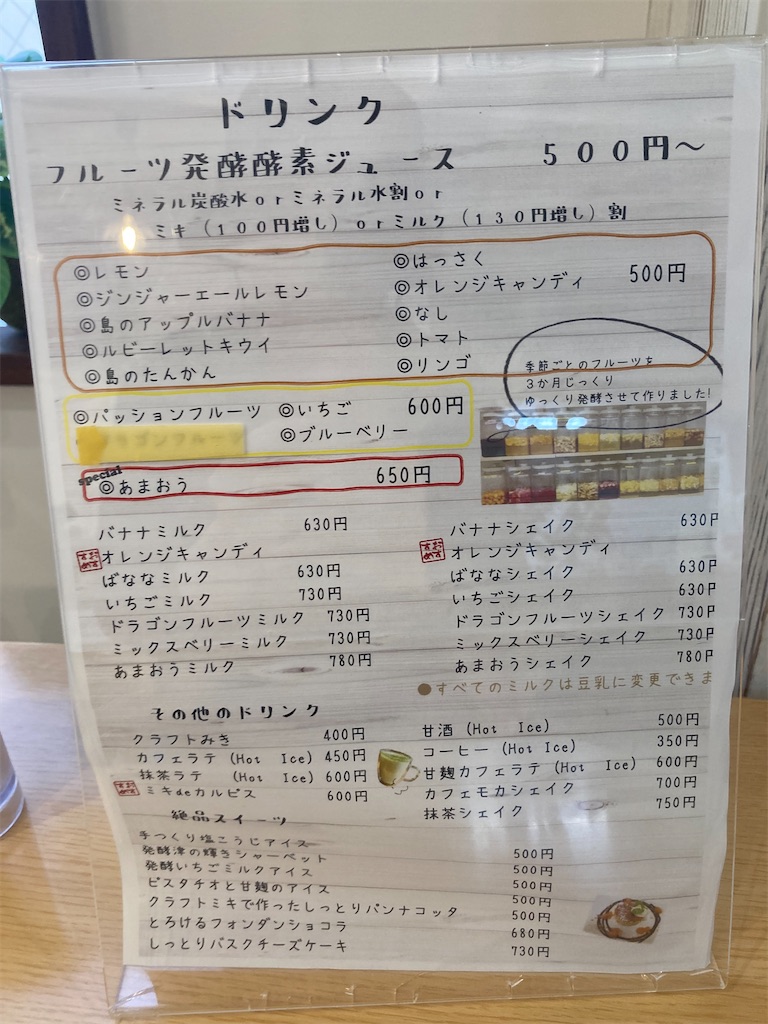 ドリンク
フルーツ発酵酵素ジュース　５００円～
ミネラル炭酸水ｏｒミネラル水割ｏｒ
ミキ（１００円増し）ｏｒミルク（１３０円増し）割
◎レモン
◎ジンジャーエールレモン
◎島のアップルバナナ
◎ルビーレットキウイ
◎島のたんかん
◎はっさく
◎オレンジキャンディ 500円
◎なし
◎トマト
◎リンゴ
季節ごとのフルーツを
３か月じっくり
ゆっくり発酵させて作りました!
◎パッションフルーツ ◎いちご 600円
ドラゴンフルーツ ◎ブルーベリー
special
◎あまおう 650円
バナナミルク 630円
おすすめ
オレンジキャンディ
ばななミルク 630円
いちごミルク 730円
ドラゴンフルーツミルク 730円
ミックスベリーミルク 730円
あまおうミルク 780円
バナナシェイク 630円
おすすめ
オレンジキャンディ
ばななシェイク 630円
いちごシェイク 630円
ドラゴンフルーツシェイク 730円
ミックスベリーシェイク 730円
あまおうシェイク 780円
●すべてのミルクは豆乳に変更できま
その他のドリンク
クラフトみき 400円
カフェラテ (Hot Ice) 450円
抹茶ラテ (Hot Ice) 600円
おすすめ
ミキdeカルピス 600円
甘酒 (Hot Ice) 500円
コーヒー (Hot Ice) 350円
甘麹カフェラテ (Hot Ice) 600円
カフェモカシェイク 700円
抹茶シェイク 750円
絶品スイーツ
手つくり塩こうじアイス 500円
発酵津の輝きシャーベット 500円
発酵いちごミルクアイス 500円
ピスタチオと甘麹のアイス 500円
クラフトミキで作ったしっとりパンナコッタ 500円
とろけるフォンダンショコラ 680円
しっとりバスクチーズケーキ 730円